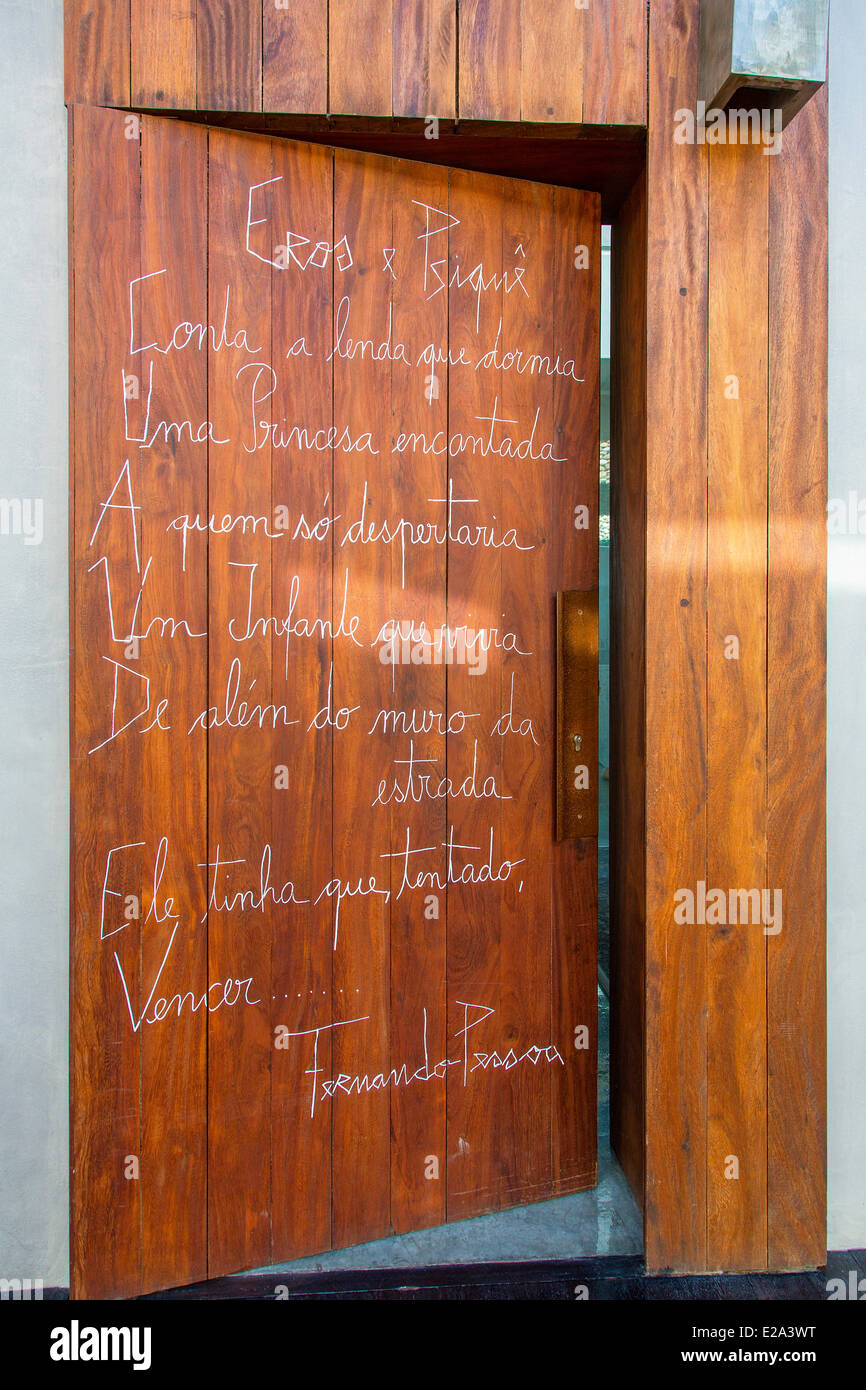 Eros e Psiquê
Conta a lenda que dormia
Uma Princesa encantada
A quem só despertaria
Um Infante que vivia
De além do muro da
estrada
Ele tinha que, tentado,
Vencer ........
Fernando Pessoa
alamy
Image ID: E2A3WT
www.alamy.com